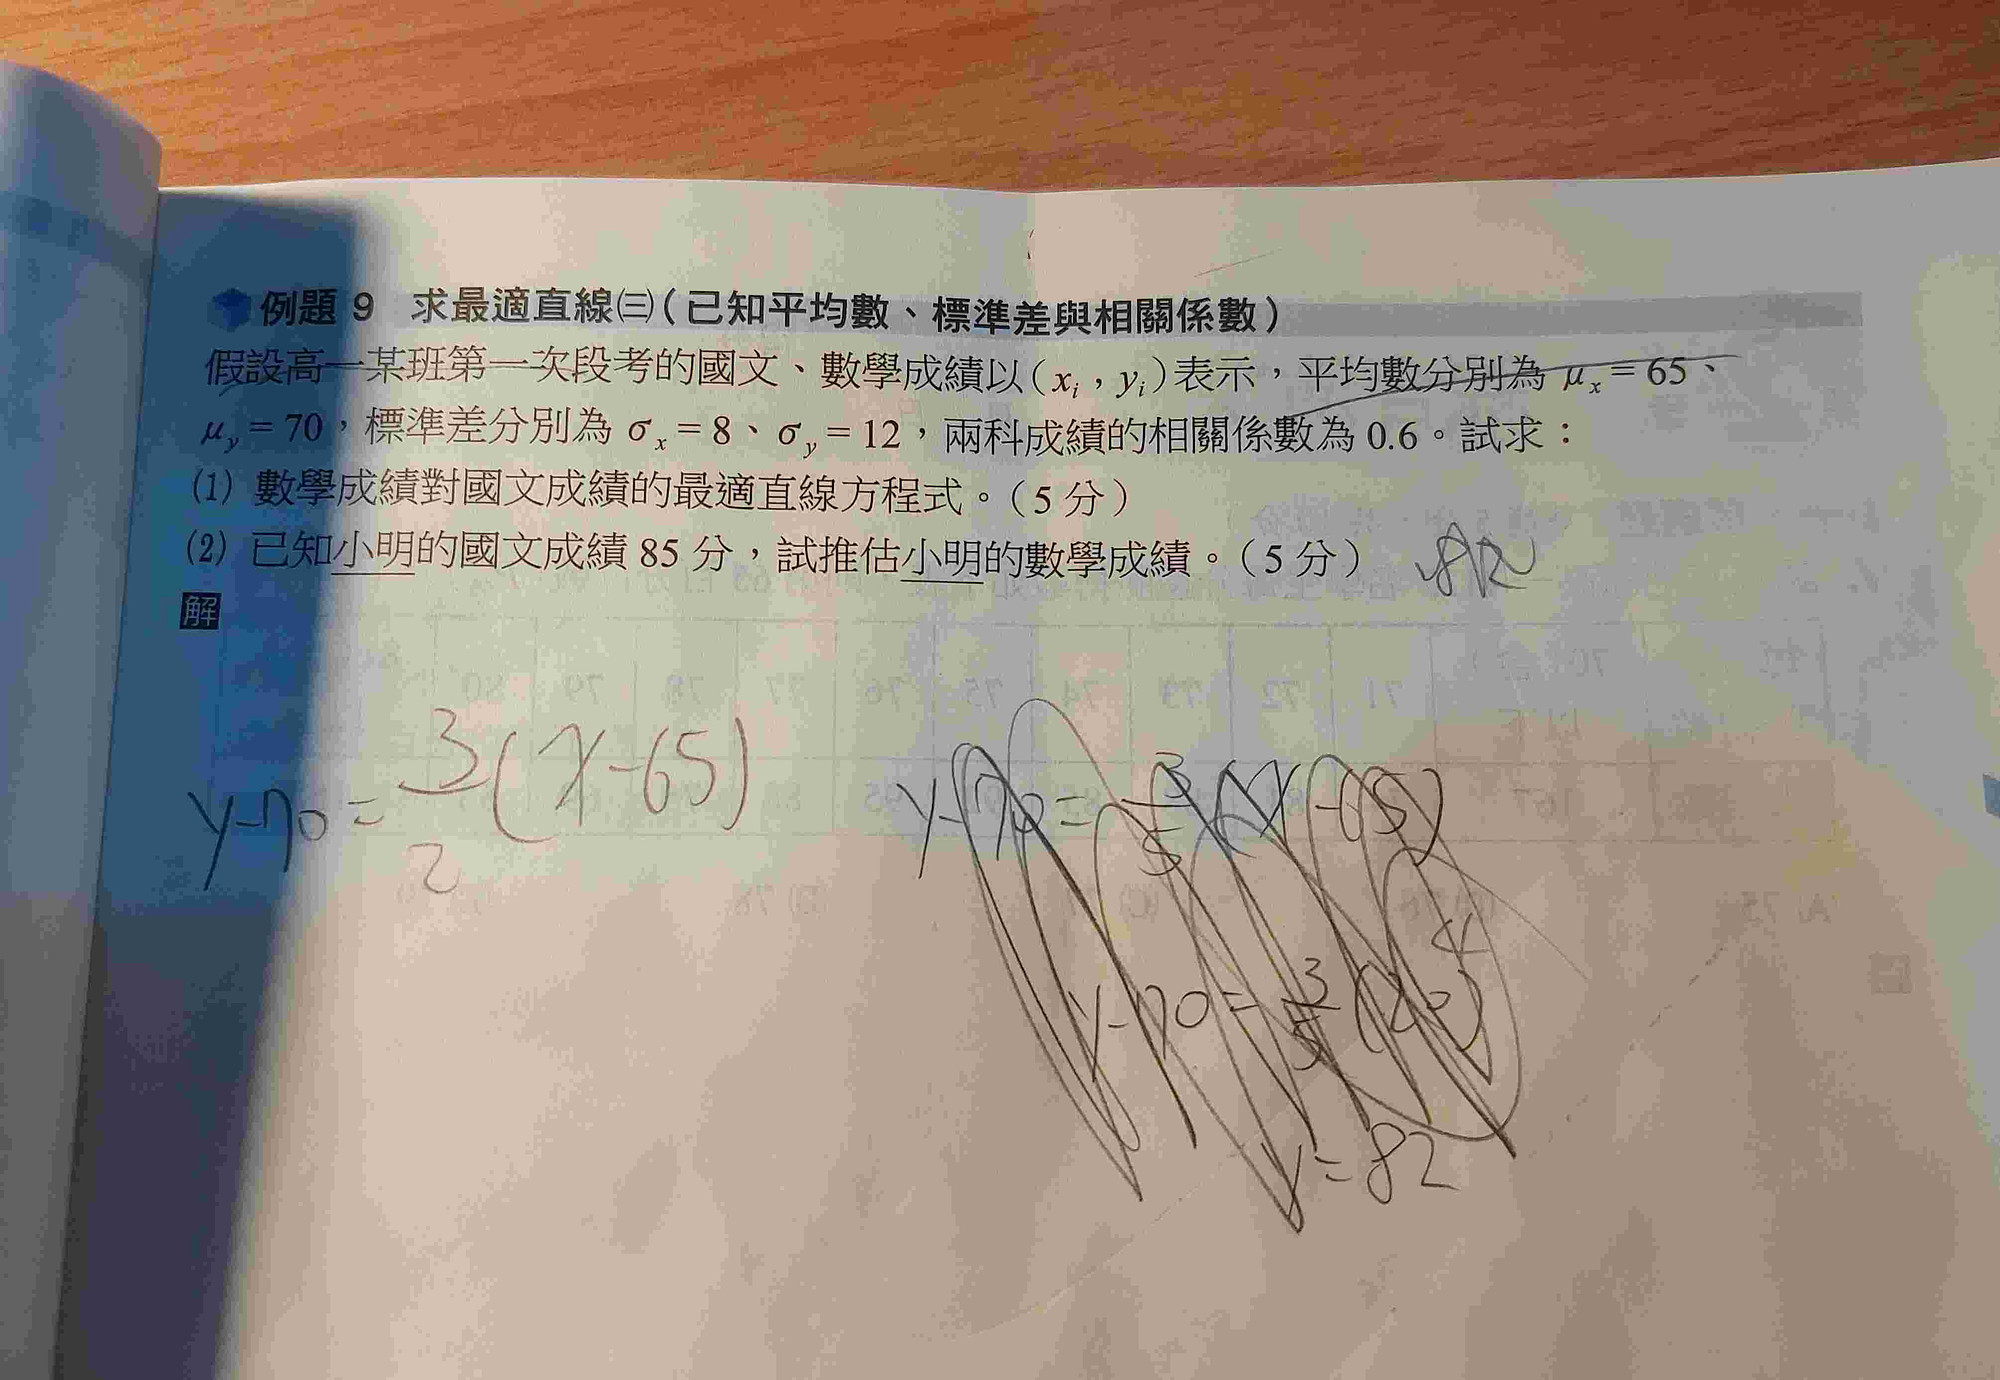 例題 9 求最適直線㈢(已知平均數、標準差與相關係數)
假設高一某班第一次段考的國文、數學成績以(xᵢ,yᵢ)表示,平均數分別為 μₓ=65、
μᵧ=70,標準差分別為 σₓ=8、σᵧ=12,兩科成績的相關係數為 0.6。試求:
⑴ 數學成績對國文成績的最適直線方程式。(5 分)
⑵ 已知小明的國文成績 85 分,試推估小明的數學成績。(5 分)
解
y-70=3/2(x-65)
y-70=3/5(x-65)
y-70=3/5(20)
4
y=82